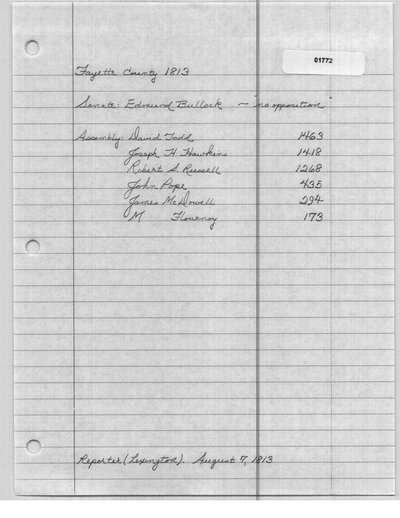 01772
Fayette County 1813
Senate: Edmund Bullock — "no opposition"
Assembly: David Todd 1463
Joseph H. Hawkins 1418
Robert S. Russell 1268
John Pope 435
James McDowell 294
M Flournoy 173
Reporter (Lexington). August 7, 1813